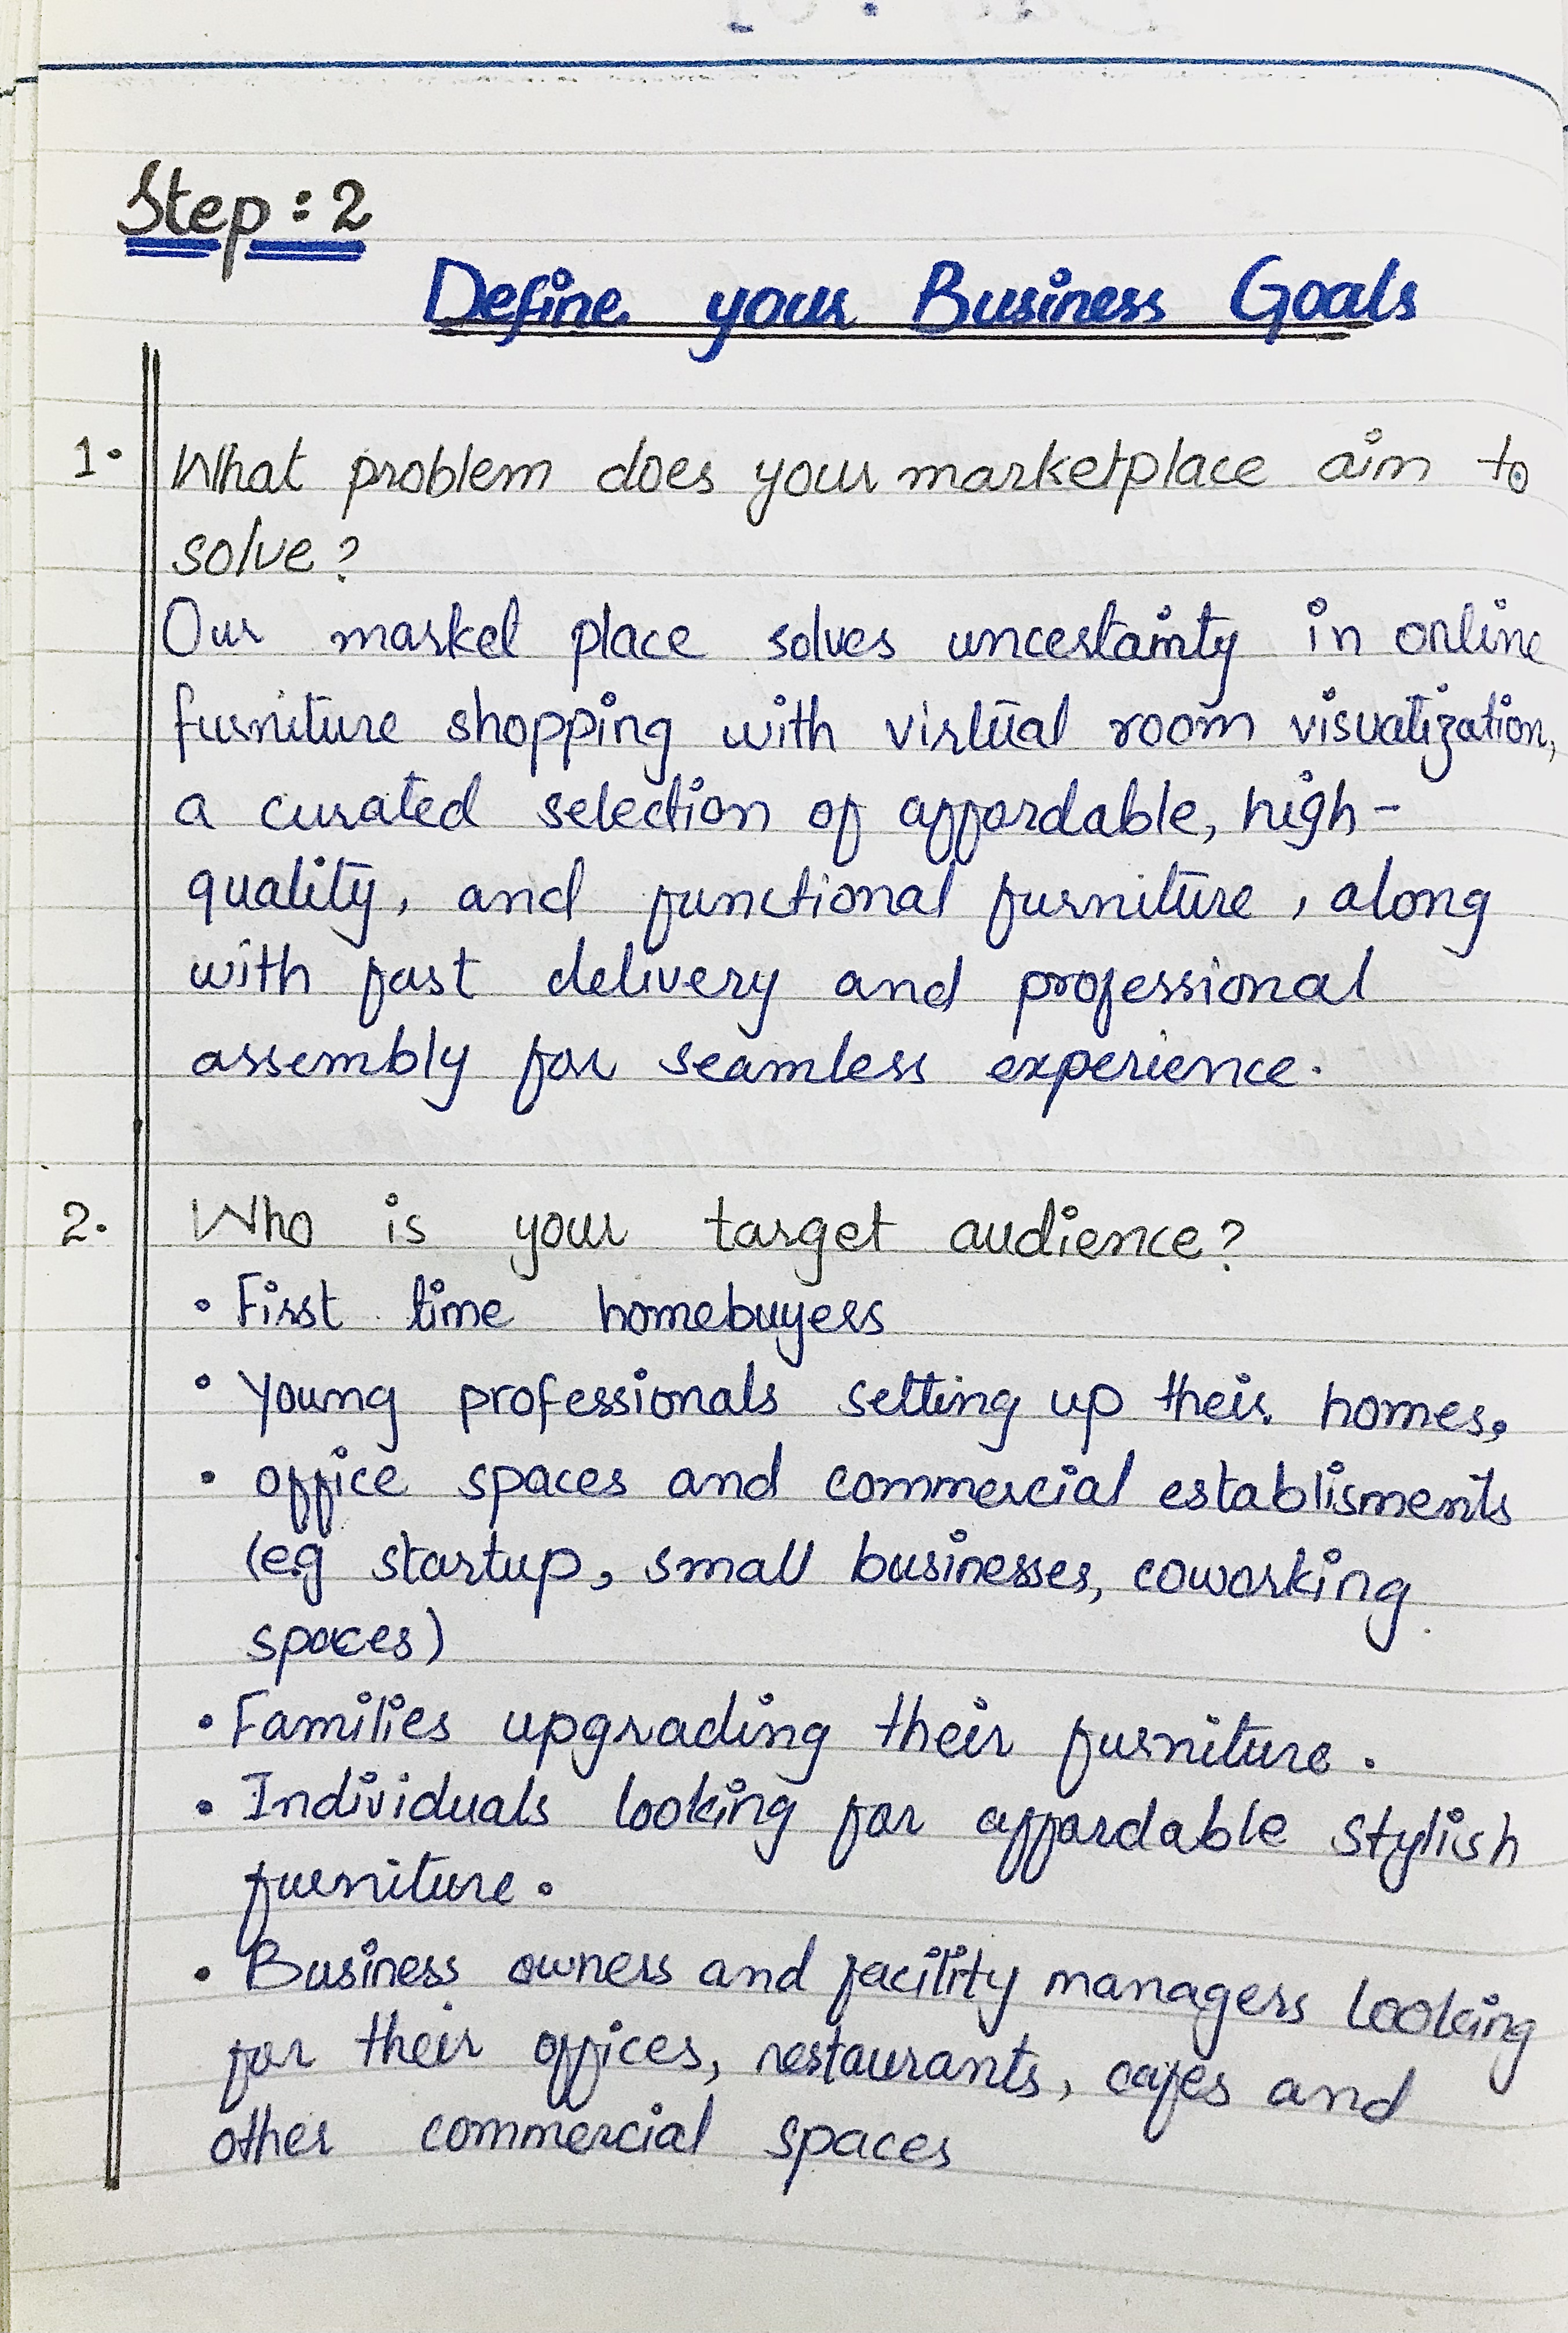 Step : 2
Define your Business Goals
1. What problem does your marketplace aim to
solve?
Our market place solves uncertainty in online
furniture shopping with virtual room visualization,
a curated selection of affordable, high-
quality, and functional furniture, along
with fast delivery and professional
assembly for seamless experience.
2. Who is your target audience?
• First time homebuyers
• Young professionals setting up their homes.
• office spaces and commercial establisments
(e.g startup, small businesses, coworking
spaces)
• Families upgrading their furniture.
• Individuals looking for affordable stylish
furniture.
• Business owners and facility managers looking
for their offices, restaurants, cafes and
other commercial spaces